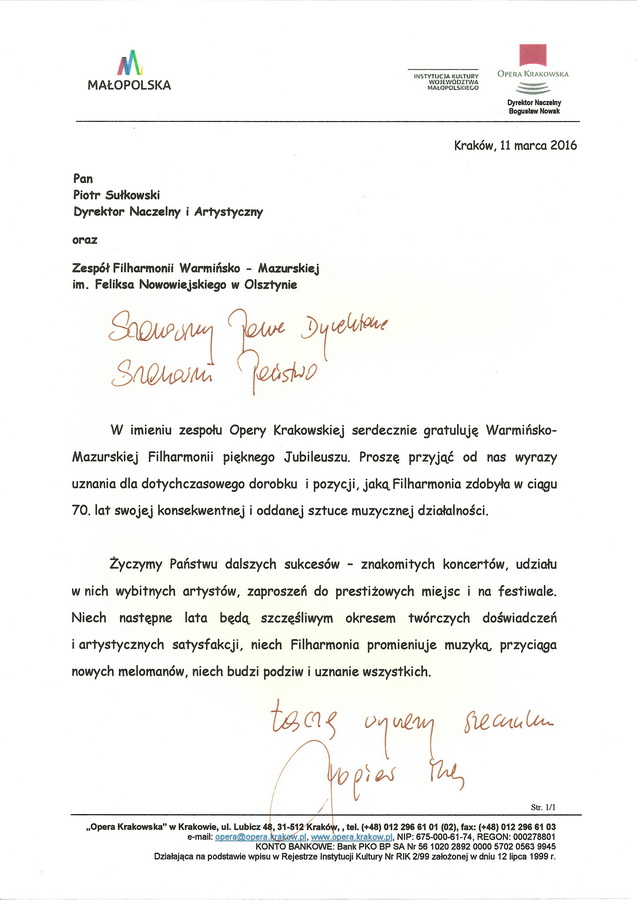 MAŁOPOLSKA
INSTYTUCJA KULTURY
WOJEWÓDZTWA
MAŁOPOLSKIEGO
OPERA KRAKOWSKA
Dyrektor Naczelny
Bogusław Nowak
Kraków, 11 marca 2016
Pan
Piotr Sułkowski
Dyrektor Naczelny i Artystyczny
oraz
Zespół Filharmonii Warmińsko - Mazurskiej
im. Feliksa Nowowiejskiego w Olsztynie
Szanowny Panie Dyrektorze
Szanowni Państwo
W imieniu zespołu Opery Krakowskiej serdecznie gratuluję Warmińsko-
Mazurskiej Filharmonii pięknego Jubileuszu. Proszę przyjąć od nas wyrazy
uznania dla dotychczasowego dorobku i pozycji, jaką Filharmonia zdobyła w ciągu
70. lat swojej konsekwentnej i oddanej sztuce muzycznej działalności.
Życzymy Państwu dalszych sukcesów – znakomitych koncertów, udziału
w nich wybitnych artystów, zaproszeń do prestiżowych miejsc i na festiwale.
Niech następne lata będą szczęśliwym okresem twórczych doświadczeń
i artystycznych satysfakcji, niech Filharmonia promieniuje muzyką, przyciąga
nowych melomanów, niech budzi podziw i uznanie wszystkich.
Łączę wyrazy szacunku
Str. 1/1
„Opera Krakowska" w Krakowie, ul. Lubicz 48, 31-512 Kraków, , tel. (+48) 012 296 61 01 (02), fax: (+48) 012 296 61 03
e-mail: opera@opera.krakow.pl, www.opera.krakow.pl, NIP: 675-000-61-74, REGON: 000278801
KONTO BANKOWE: Bank PKO BP SA Nr 56 1020 2892 0000 5702 0563 9945
Działająca na podstawie wpisu w Rejestrze Instytucji Kultury Nr RIK 2/99 założonej w dniu 12 lipca 1999 r.